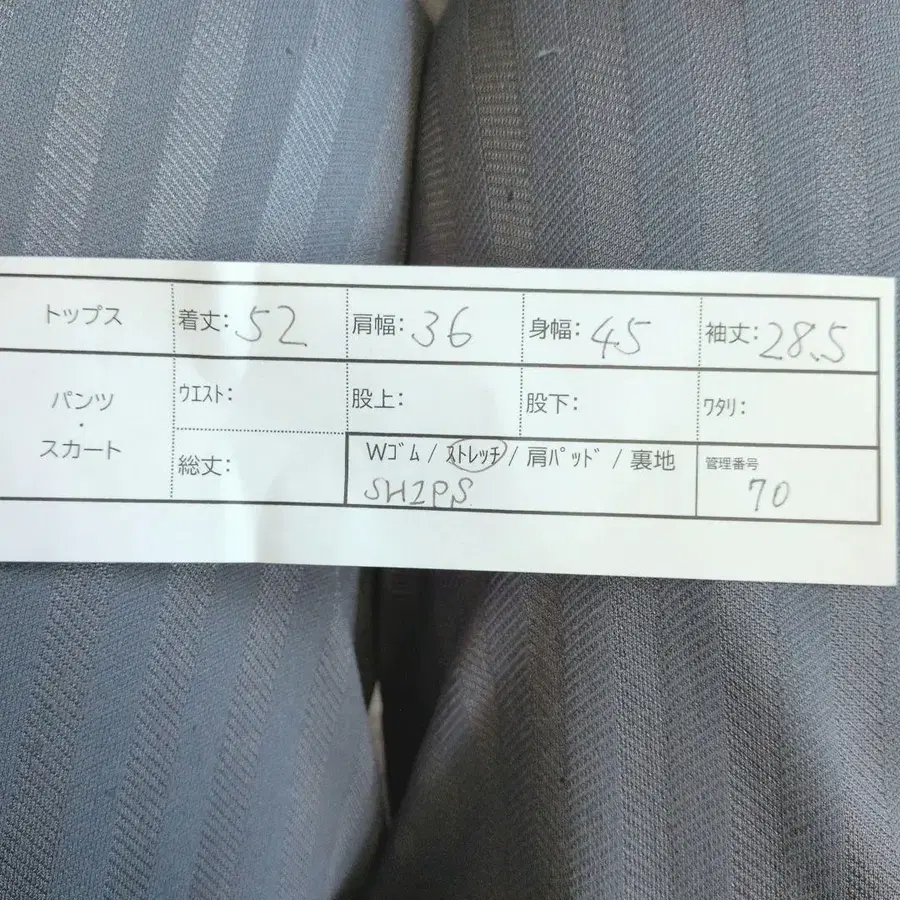 トップス 着丈: 52 肩幅: 36 身幅: 45 袖丈: 28.5
パンツ・スカート ウエスト: 股上: 股下: ワタリ:
総丈: Wゴム / ストレッチ / 肩パッド / 裏地 管理番号
SHIPS 70